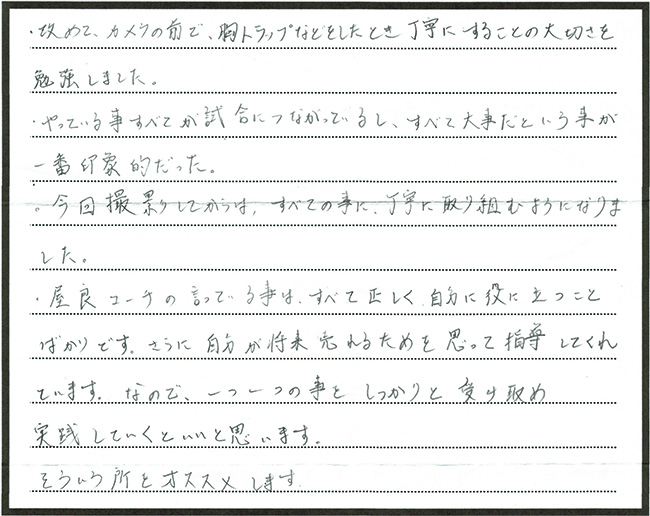 ・攻めて、カメラの前で、胸トラップなどをしたとき丁寧にすることの大切さを
勉強しました。
・やっている事すべてが試合につながっているし、すべて大事だという事が
一番印象的だった。
。今回撮影してからは、すべての事に、丁寧に取り組むようになりま
した。
・屋良コーチの言っている事は、すべて正しく自分に役に立つこと
ばかりです。さらに自分が将来売れるためを思って指導してくれ
ています。なので、一つ一つの事をしっかりと受け取め
実践していくといいと思います。
そういう所をオススメします。